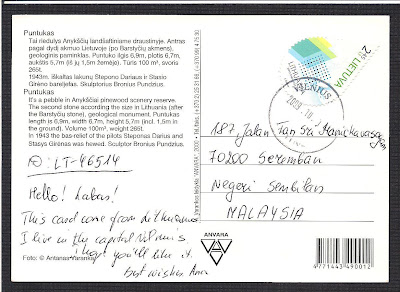 Puntukas
Tai riedulys Anykščių landšaftiniame draustinyje. Antras
pagal dydį akmuo Lietuvoje (po Barstyčių akmens),
geologinis paminklas. Puntuko ilgis 6,9m, plotis 6,7m,
aukštis 5,7m (iš jų 1,5m žemėje). Tūris 100 m³, svoris
265t.
1943m. iškaltas lakūnų Stepono Dariaus ir Stasio
Girėno bareljefas. Skulptorius Bronius Pundzius.
Puntukas
It's a pebble in Anykščiai pinewood scenery reserve.
The second stone according the size in Lithuania (after
the Barstyčių stone), geological monument. Puntukas
length is 6,9m, width 6,7m, height 5,7m (incl. 1,5m in
the ground). Volume 100m³, weight 265t.
In 1943 the bas-relief of the pilots Steponas Darius and
Stasys Girėnas was hewed. Sculptor Bronius Pundzius.
ID: LT-46514
Hello! Labas!
This card come from Lithuania
I live in the capital Vilnius
I hope you'll like it.
best wishes
Foto: © Antanas Varanka
LIETUVA
VILNIUS
187, Jalan Tan Sri Manickavasagam
70200 Seremban
Negeri Sembilan
MALAYSIA
ANVARA
4 771443 490012